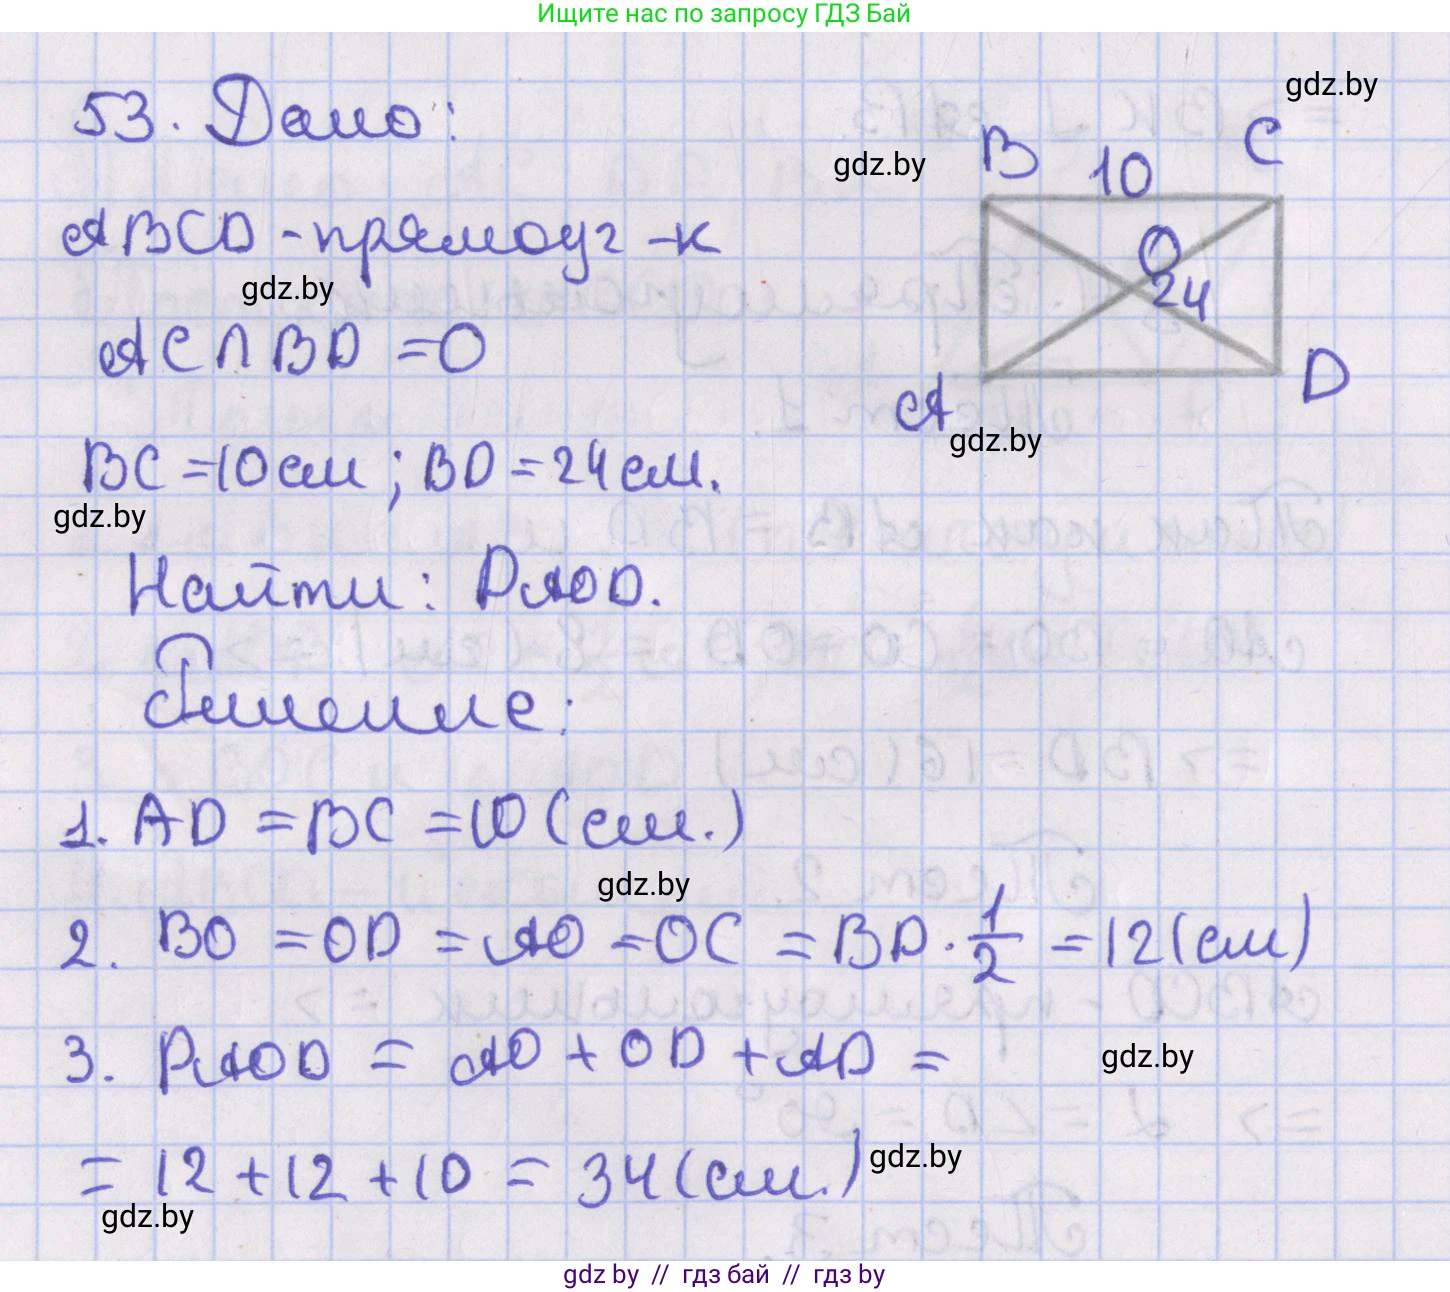 Ищите нас по запросу ГДЗ Бай
53. Дано:
gdz.by
gdz.by
B 10 C
ABCD - прямоуг - к
O
24
gdz.by
AC ∩ BD = O
A D
gdz.by
BC = 10 см ; BD = 24 см.
gdz.by
Найти: PAOD.
Решение:
1. AD = BC = 10 (см.)
gdz.by
2. BO = OD = AO = OC = BD · 1/2 = 12 (см)
3. PAOD = AO + OD + AD =
gdz.by
= 12 + 12 + 10 = 34 (см.)
gdz.by
gdz.by
gdz by // гдз бай // гдз by